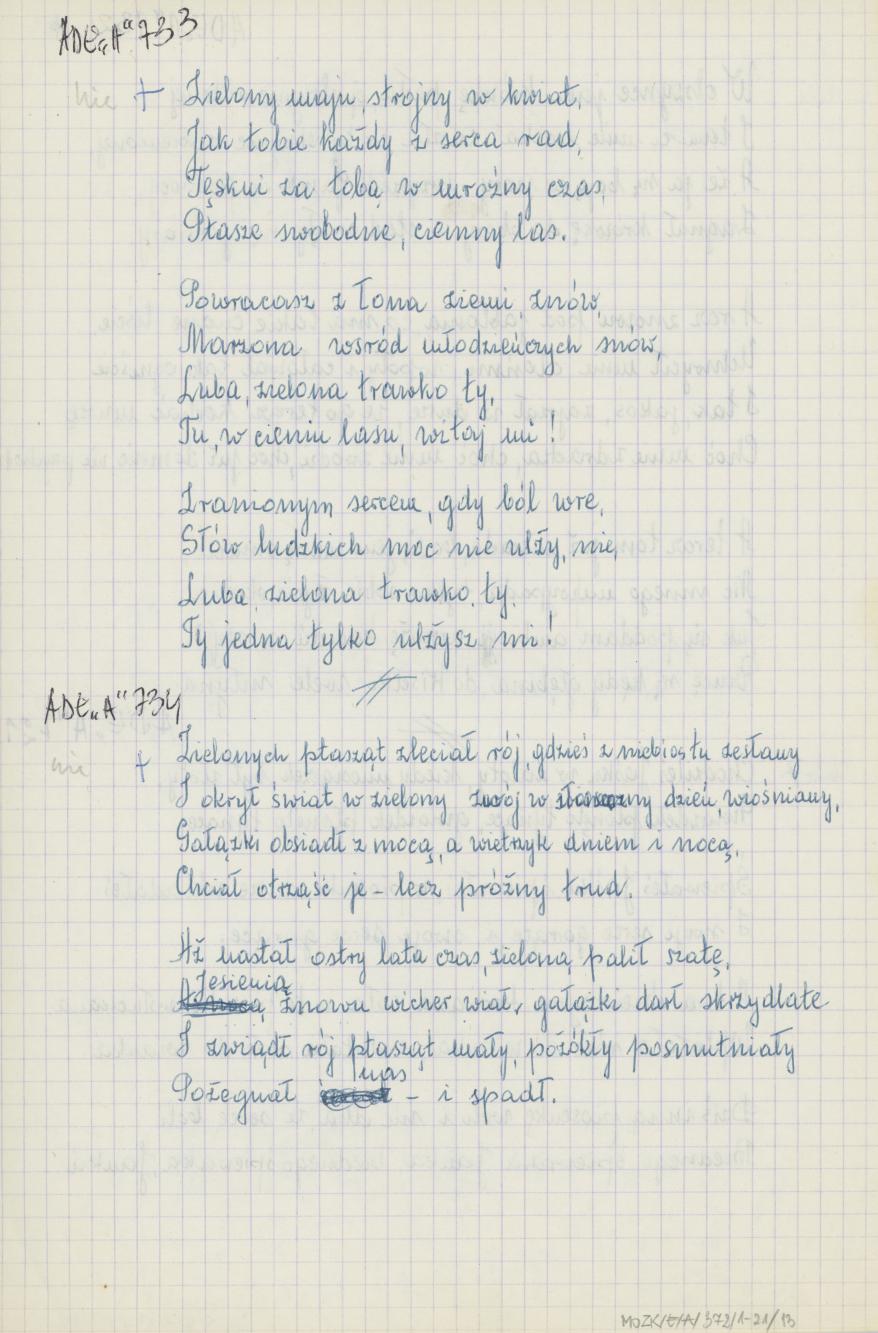 ADE„A" 733
+ Zielony maju, strojny w kwiat,
Jak tobie każdy z serca rad,
Tęskni za tobą w mroźny czas,
Ptasze swobodne, ciemny las.
Powracasz z łona ziemi, znów,
Marzona wsród młodzieńczych snów,
Luba, zielona trawko ty,
Tu, w cieniu lasu, witaj mi!
Zranionym sercem, gdy ból wre,
Słów ludzkich moc nie ulży, nie,
Luba, zielona trawko, ty,
Ty jedna tylko ulżysz mi!
ADE„A" 734
+ Zielonych ptasząt zleciał rój, gdzieś z niebiosłu zesłany
I okrył świat w zielony zwój w dzień, wiośniany,
Gałązki obsiadł z mocą, a wietrzyk dniem i nocą,
Chciał otrząść je - lecz próżny trud.
Aż nastał ostry lata czas, zieloną palił szatę,
Jesienią
znowu wicher wiał, gałązki darł skrzydlate
I zwiądł rój ptasząt mały, pożókły posmutniały
nas
Pożegnał - i spadł.
MOZK/E/A/372/1-21/13